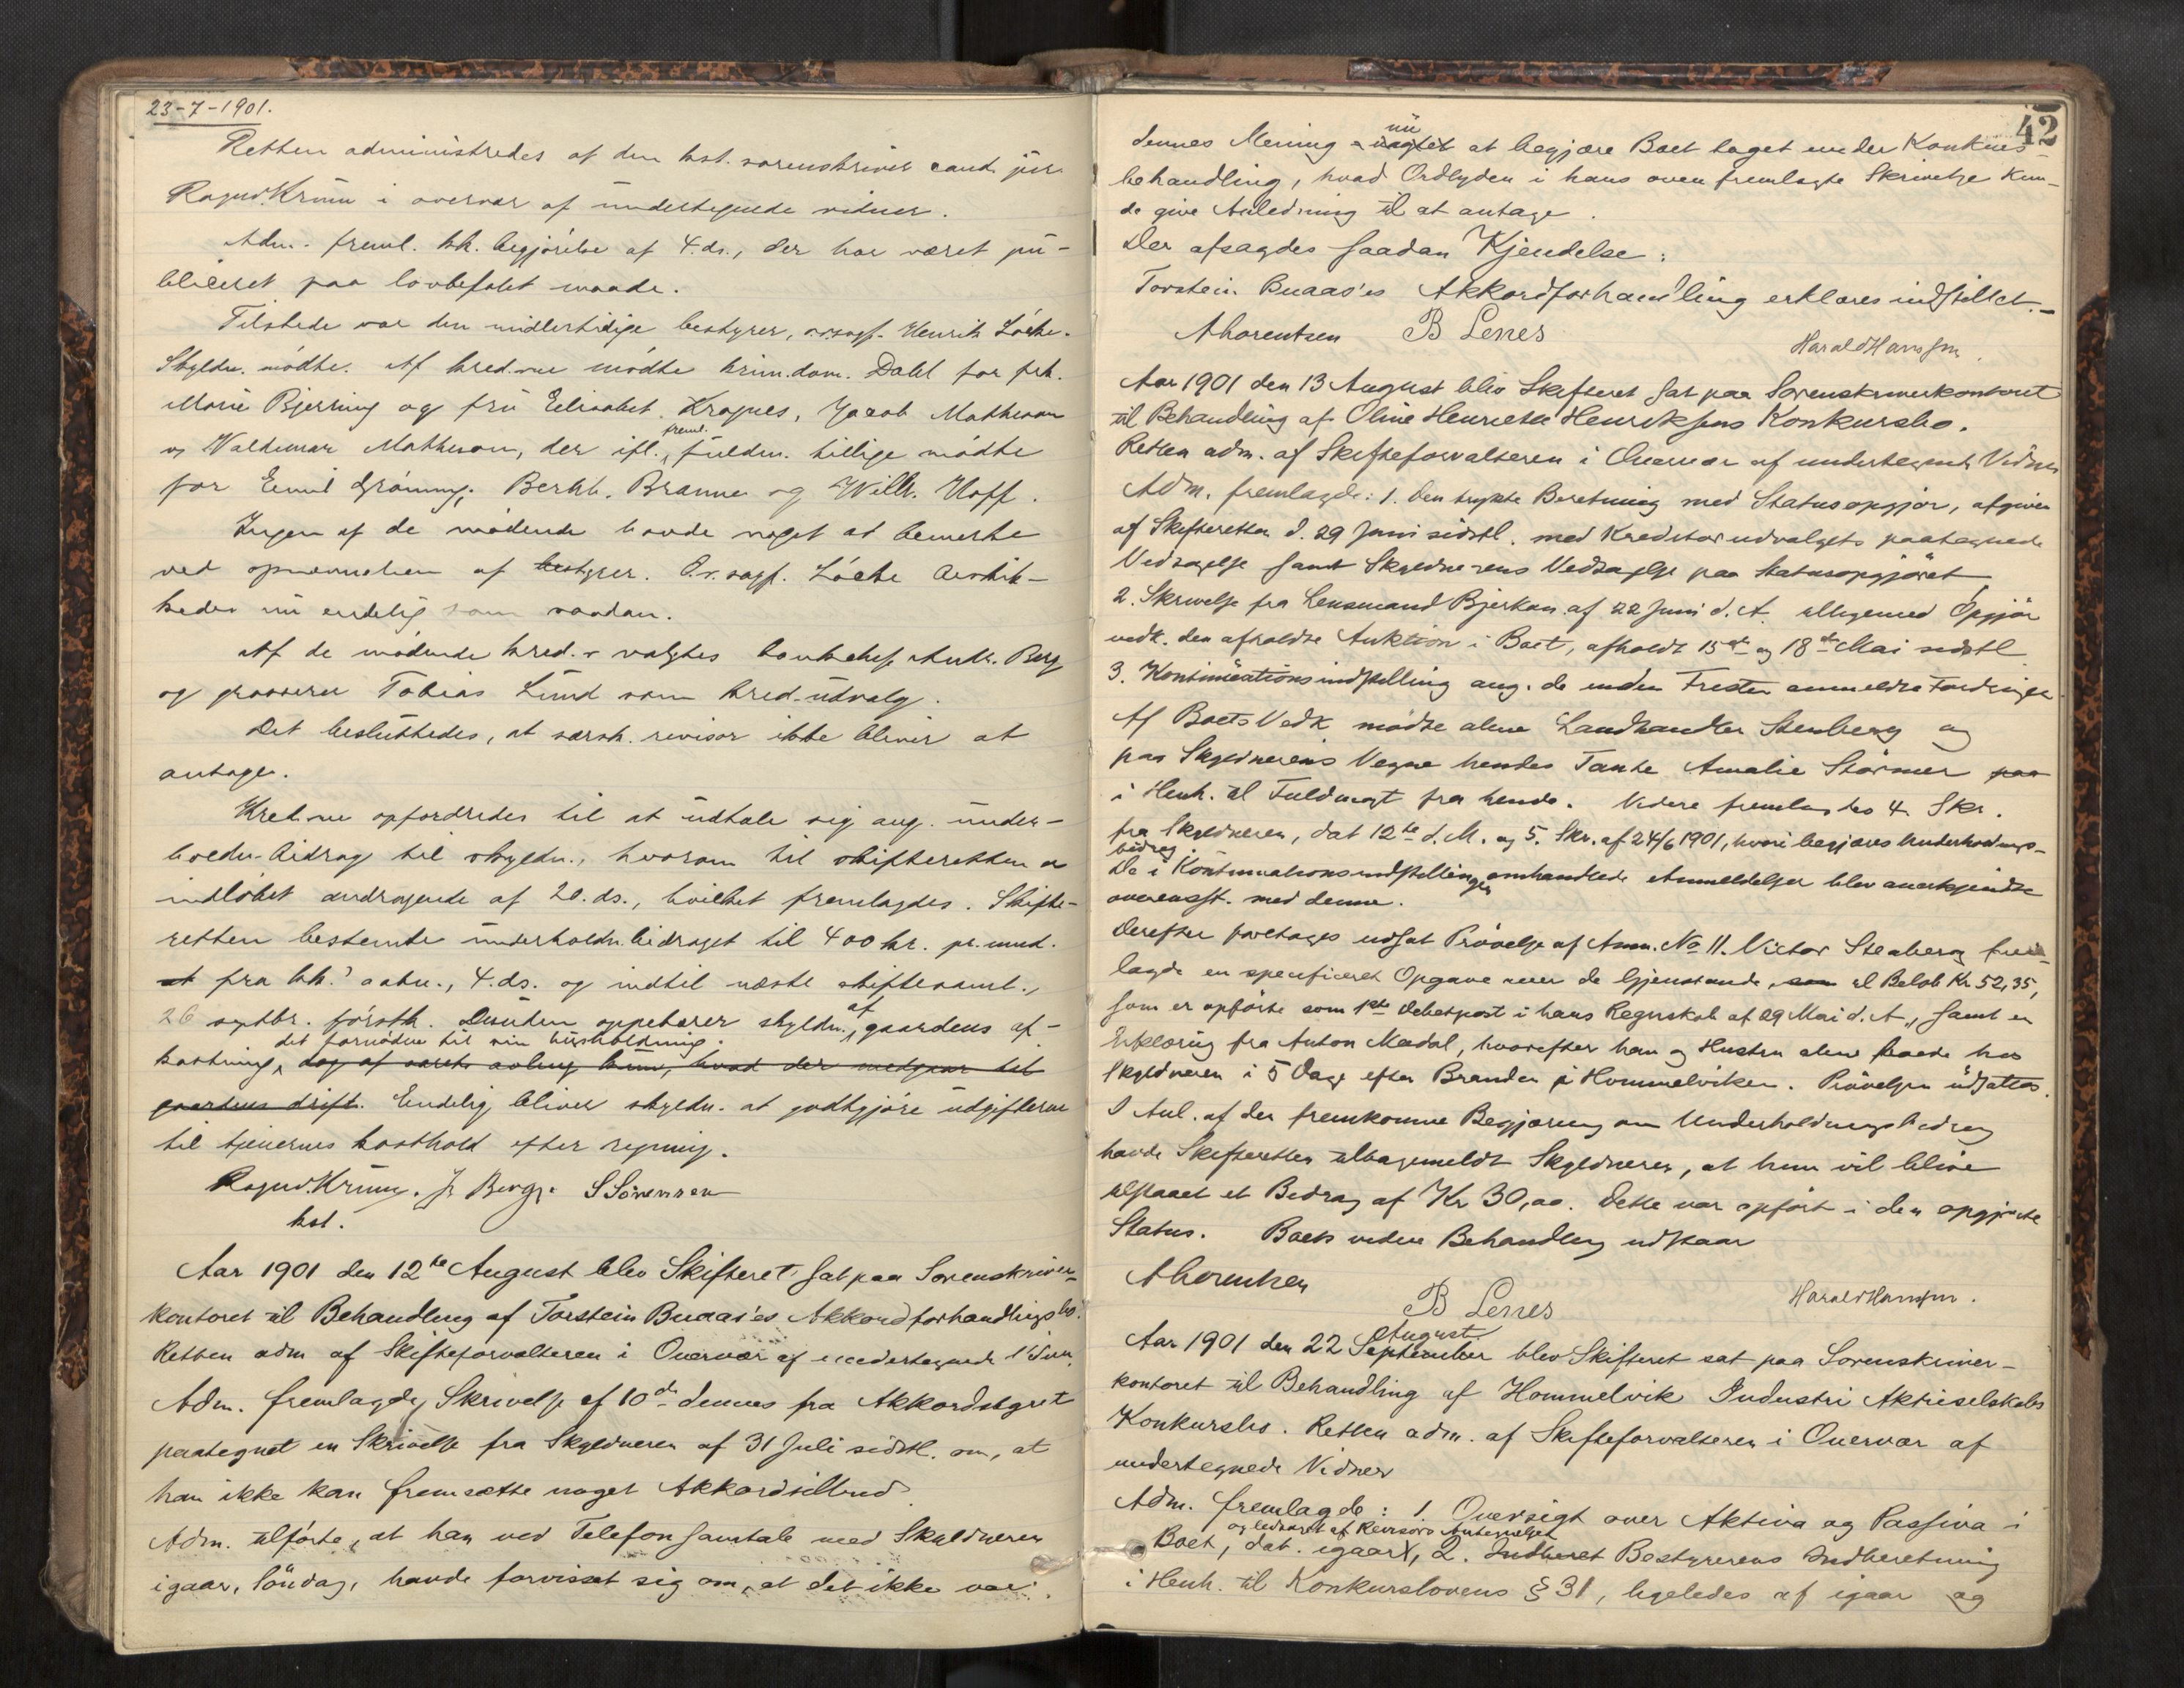 23-7-1901.
Retten administredes af den kst. sorenskriver cand. jur.
Ragnv. Krum i overvær af undertegnede vidner.
Adm. freml. kk. begjørelse af 4. ds., der har været pu-
bliceret paa lovbefalet maade.
Tilstede var den midlertidige bestyrer, o.r.sagf. Henrik Löcke.
Skyldn. mödte. Af kred.ne mödte krim.dom. Dahl for frk.
Marie Bjerking og fru Elisabet Kragnes, Jacob Matheson
og Waldemar Matheson, der ifl. freml. fuldm. tillige mödte
for Emil Gröning, Berhh. Branne og Willh. Hoff.
Ingen af de mödende havde noget at bemerke
ved opnevnelsen af bestyrer. O.r.sagf. Löcke beskik-
kedes nu endelig som saadan.
Af de mödende kred.r valgtes bankchef Antr. Berg
og grosserer Tobias Lund som kred-udvalg.
Det besluttedes, at særsk. revisor ikke bliver at
antage.
Kred.ne opfordredes til at udtale sig ang. under-
holdn.bidrag til skyldn., hvorom til skifteretten er
indløbet andragende af 20. ds., hvilket fremlagdes. Skifte-
retten bestemte underholdn.bidraget til 400 kr. pr. mnd.
at fra kk.' aabn., 4. ds. og indtil næste skiftesaml.,
26 septbr. förstk. Desuden oppebærer skyldn., af gaardens af-
kastning, det fornödne til sin husholdning. dog af aarets avling kun, hvad der medgaar til
gaardens drift. Endelig bliver skyldn. at godtgjöre udgifterne
til tjenernes kosthold efter regning.
Ragnv. Krum. J. Berg. S Sörensen
kst.
Aar 1901 den 12te August blev Skifteret sat paa Sorenskriver-
kontoret til Behandling af Torstein Buaas'es Akkordforhandlingsbo.
Retten adm af Skifteforvalteren i Overvær af undertegnede Vidner.
Adm. fremlagde Skrivelse af 10de dennes fra Akkordstyret
paategnet en Skrivelse fra Skyldneren af 31 Juli sidstl. om, at
han ikke kan fremsætte noget Akkordtilbud.
Adm. tilførte, at han ved Telefonsamtale med Skyldneren
igaar, Söndag, havde forvisset sig om, at det ikke var
42
dennes Mening nu at begjære Boet taget under Konkurs-
behandling, hvad Ordlyden i hans oven fremlagte Skrivelse kun-
de give Anledning til at antage.
Der afsagdes saadan Kjendelse:
Torstein Buaas'es Akkordforhandling erklæres indstillet.
Alorentzen B Lenes
Harald Hansson.
Aar 1901 den 13 August blev Skifteret sat paa Sorenskriverkontoret
til Behandling af Oline Henriette Henriksens Konkursbo.
Retten adm. af Skifteforvalteren i Overvær af undertegnede Vidner
Adm. fremlagde: 1. Den trykte Beretning med Statusopgjør, afgiven
af Skifteretten d. 29 Juni sidstl. med Kreditorudvalgets paategnede
Vedtagelse samt Skyldnerens Vedtagelse paa Statusopgjöret
2. Skrivelse fra Lensmand Bjerkan af 22 Juni d. A. alligemed Opgjör
vedk. den afholdte Auktion i Boet, afholdt 15de og 18de Mai sidstl
3. Kontinuationsindstilling ang. de inden Fristen anmeldte Fordringer
Af Boets Vedk mödte alene Landhandler Stenberg og
paa Skyldnerens Vegne hendes Tante Amalie Störmer paa
i Henh. til Fuldmagt fra hende. Videre fremlagdes 4. Skr.
fra Skyldneren, dat 12te d. M. og 5. Skr. af 24/6 1901, hvori begjæres Underholdnings-
bidrag
De i Kontinuationsindstillingen omhandlede Anmeldelser blev anerkjendte
overensst. med denne.
Derefter foretages udsat Prövelse af Anm. No 11. Victor Stenberg frem-
lagde en specificeret Opgave over de Gjenstande, som til Beløb Kr 52,35,
som er opförte som 1ste Debetpost i hans Regnskab af 29 Mai d. A., samt en
Erklæring fra Anton Mædal, hvorefter han og Hustru alene havde hos
Skyldneren i 5 Dage efter Branden i Hommelviken. Prövelsen udsattes.
I Anl. af den fremkomne Begjæring om Underholdningsbidrag
havde Skifteretten tilbagemeldt Skyldneren, at hun vil blive
tilstaaet et Bidrag af Kr 30,00. Dette var opfört i den opgjorte
Status. Boets videre Behandling udstaar
Alorentzen
B Lenes
Harald Hansson.
Aar 1901 den 22 September August blev Skifteret sat paa Sorenskriver-
kontoret til Behandling af Hommelvik Industri Aktieselskabs
Konkursbo. Retten adm. af Skifteforvalteren i Overvær af
undertegnede Vidner
Adm. fremlagde: 1. Oversigt over Aktiva og Passiva i
Boet, dat. igaar, og ledsaget af Revisors Antegnelser 2. Indberet Bestyrerens Indberetning
i Henh. til Konkurslovens § 31, ligeledes af igaar og